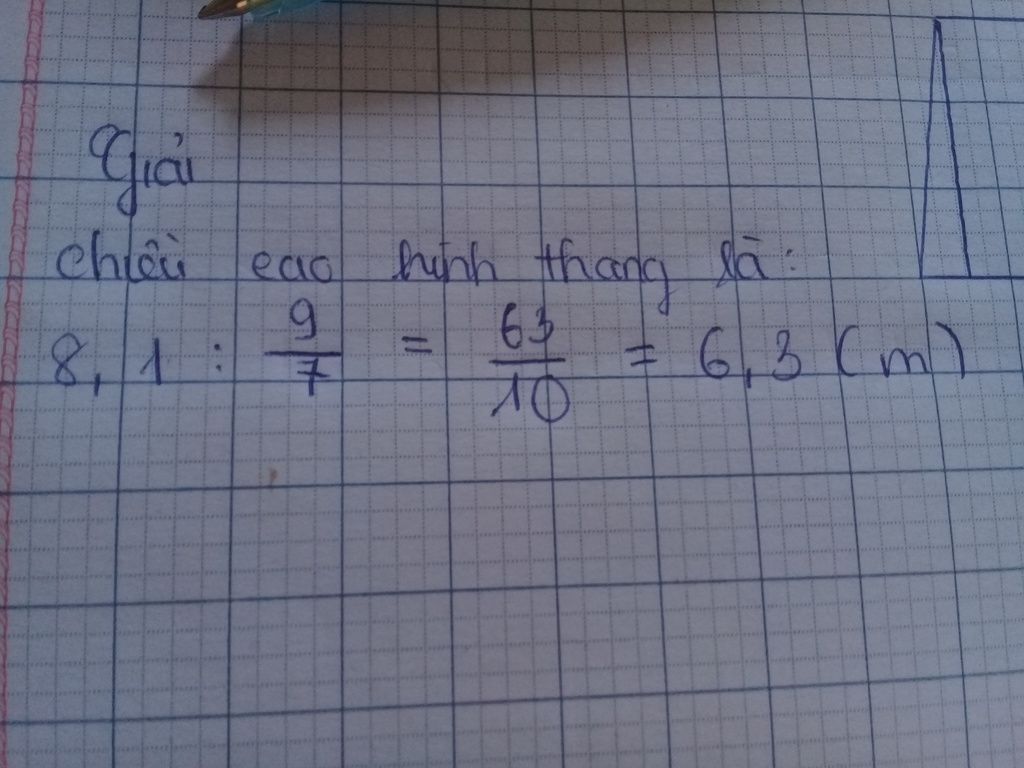 Giải
chiều cao hình thang là:
8,1 : 9/7 = 63/10 = 6,3 (m)